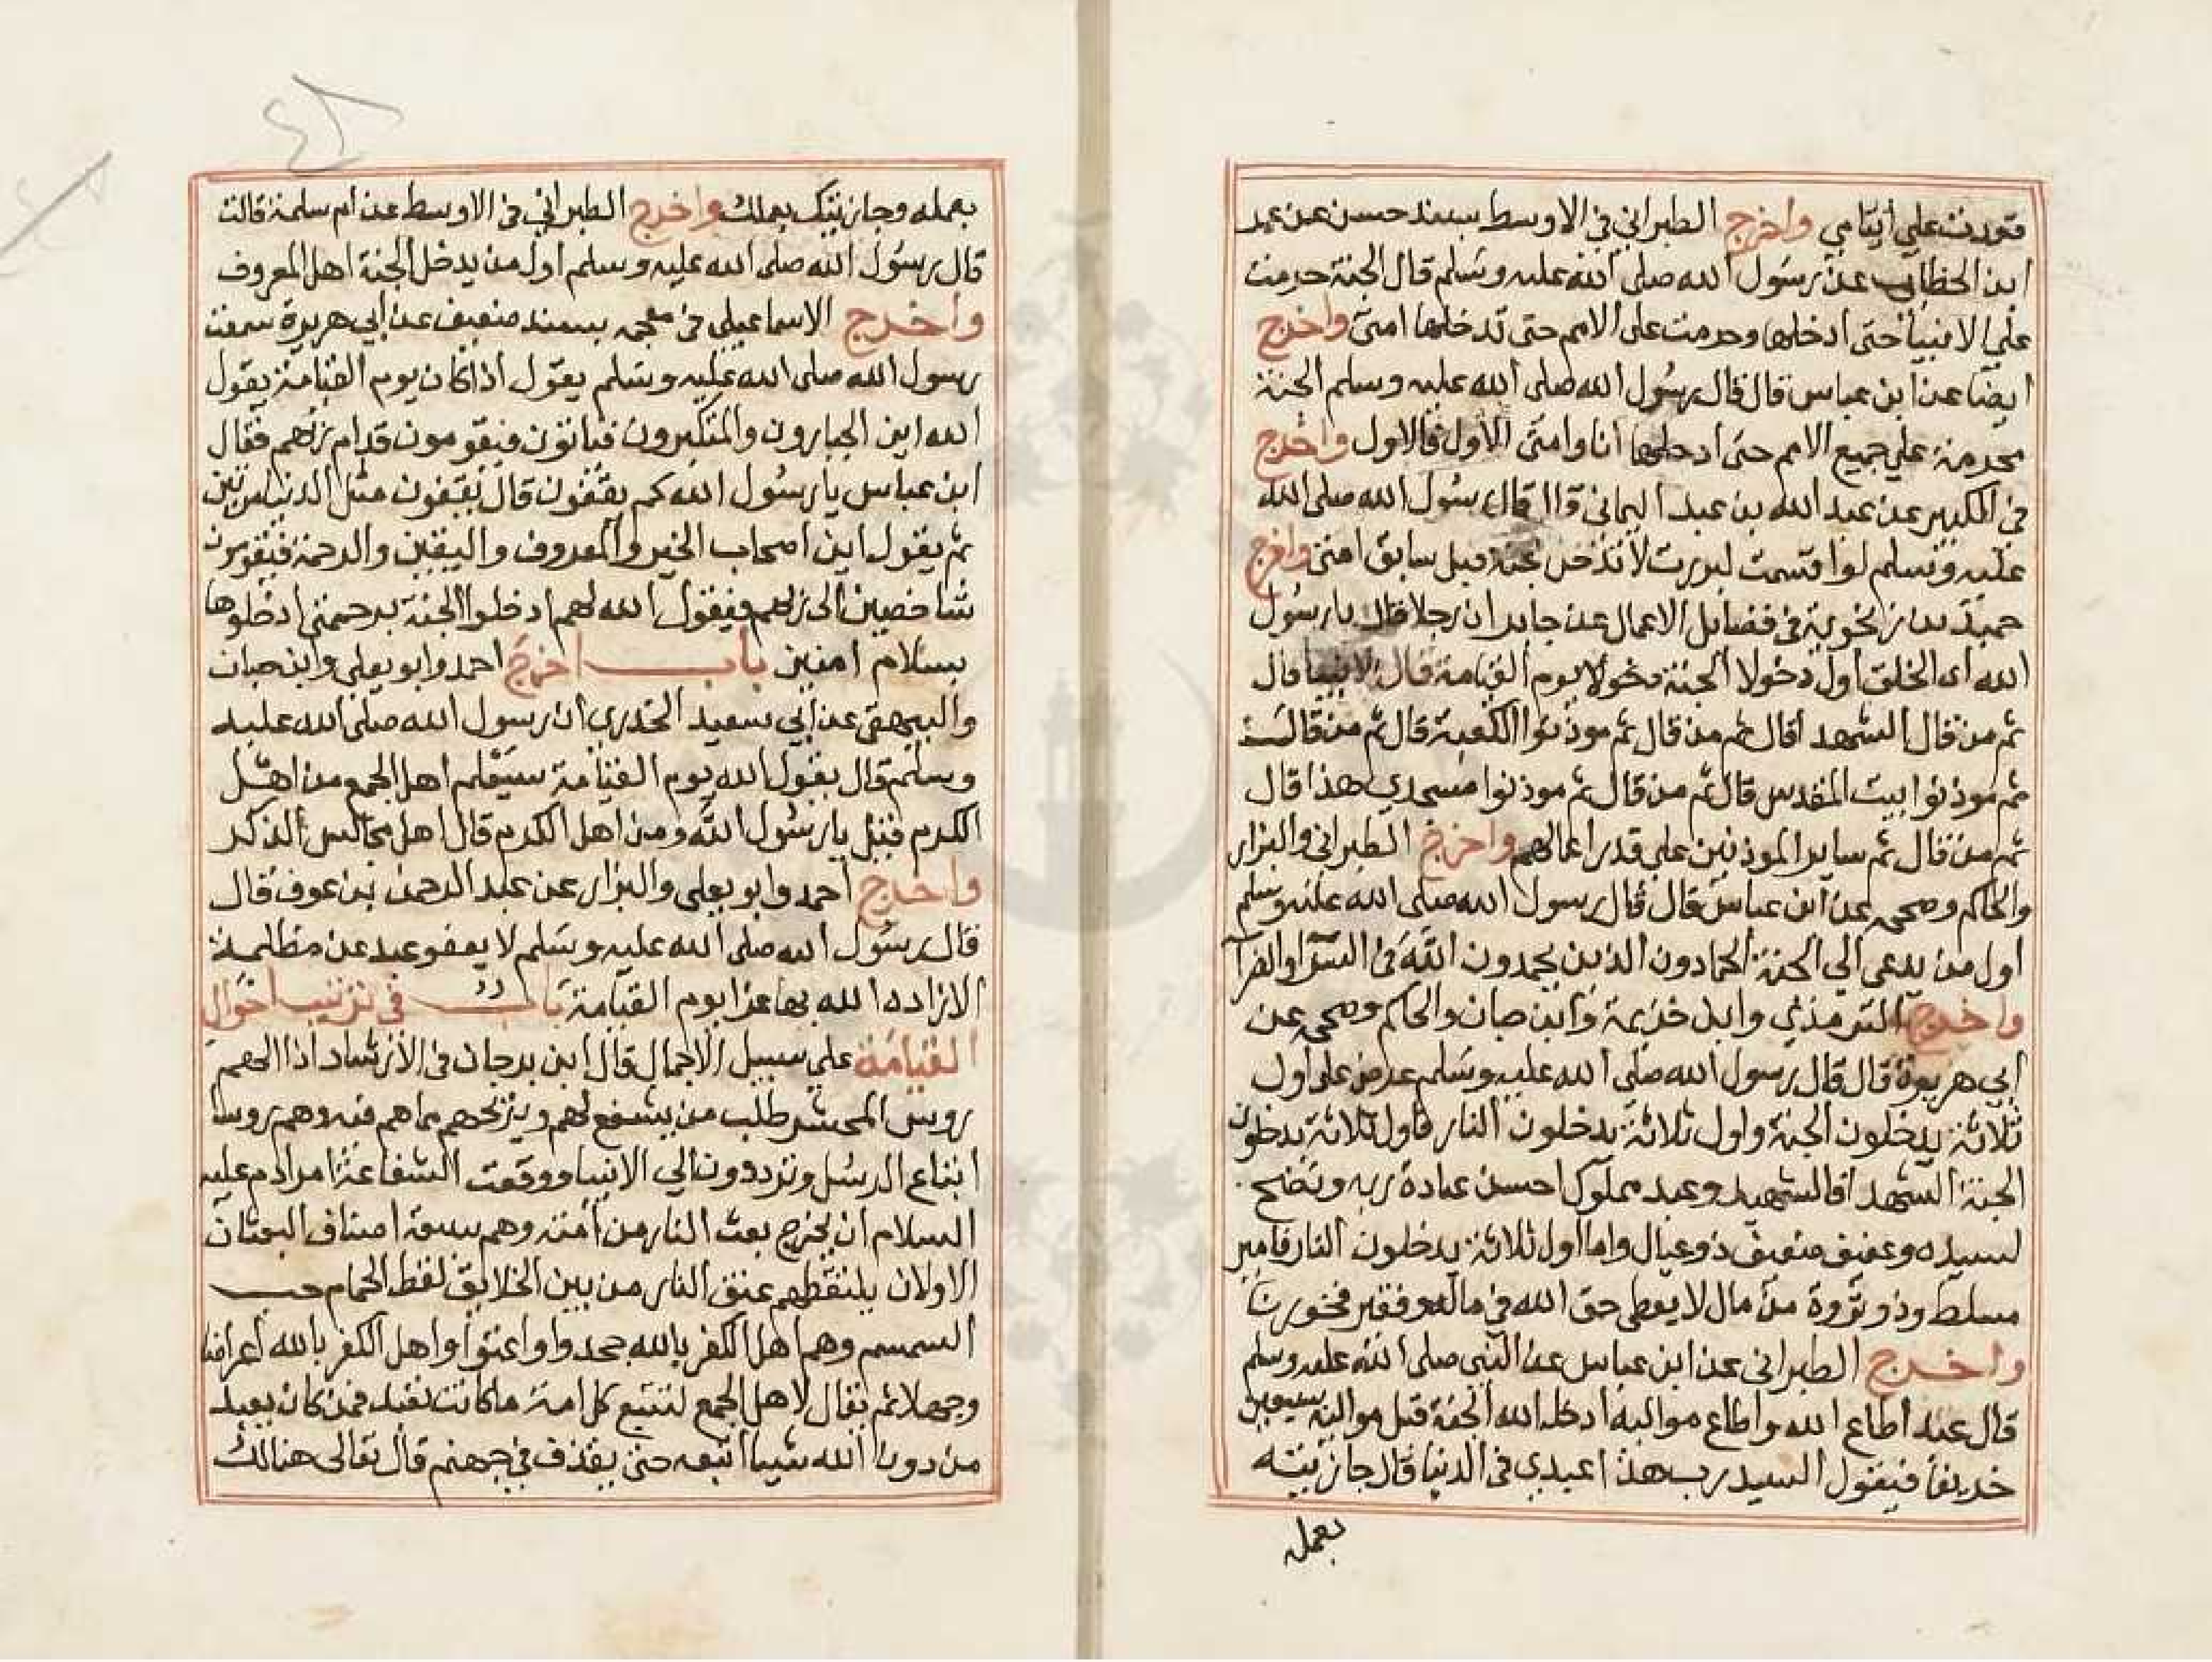 قعدت علي أيتامي واخرج الطبراني في الاوسط بسند حسن عن عمر
ابن الخطاب عن رسول الله صلى الله عليه وسلم قال الجنة حرمت
علي الانبيا حتى ادخلها وحرمت على الامم حتى تدخلها امتي واخرج
ايضا عن ابن عباس قال قال رسول الله صلى الله عليه وسلم الجنة
محرمة علي جميع الامم حتى ادخلها انا وامتي الاول فالاول واخرج
في الكبير عن عبد الله بن عبد اليماني قال قال رسول الله صلى الله
عليه وسلم لو اقسمت لبررت لا تدخل الجنة قبل سابق امتي واخرج
حميد بن زنجوية في فضايل الاعمال عن جابر ان رجلا قال يا رسول
الله اى الخلق اول دخولا الجنة يوم القيامة قال الانبيا قال
ثم من قال الشهدا قال ثم من قال ثم موذنوا الكعبة قال ثم من قال
ثم موذنوا بيت المقدس قال ثم من قال ثم موذنوا مسجدي هذا قال
ثم من قال ثم ساير الموذنين علي قدر اعمالهم واخرج الطبراني والبزار
والحاكم وصححه عن ابن عباس قال قال رسول الله صلى الله عليه وسلم
اول من يدعى الي الجنة الحمادون الذين يحمدون الله في السرا والضرا
واخرج الترمذي وابن خزيمة وابن حبان والحاكم وصححه عن
ابي هريرة قال قال رسول الله صلى الله عليه وسلم عرض على اول
ثلاثة يدخلون الجنة واول ثلاثة يدخلون النار فاول ثلاثة يدخلون
الجنة الشهدا فالشهيد وعبد مملوك احسن عبادة ربه ونصح
لسيده وعفيف متعفف ذو عيال واما اول ثلاثة يدخلون النار فامير
مسلط وذو ثروة من مال لا يعطى حق الله في ماله وفقير فخور
واخرج الطبراني عن ابن عباس عن النبي صلى الله عليه وسلم
قال عبد أطاع الله واطاع مواليه أدخله الله الجنة قبل مواليه بسبعين
خريفا فيقول السيد رب هذا عبدي في الدنيا قال جازيته
بعمله
بعمله وجازيتك بعملك واخرج الطبراني في الاوسط عن ام سلمة قالت
قال رسول الله صلى الله عليه وسلم اول من يدخل الجنة اهل المعروف
واخرج الاسماعيلي في معجمه بسند ضعيف عن ابي هريرة سمعت
رسول الله صلى الله عليه وسلم يقول اذا كان يوم القيامة يقول
الله اين الجبارون والمتكبرون فياتون فيقومون قدام ربهم فقال
ابن عباس يا رسول الله كم يقفون قال يقفون مثل الدنيا مرتين
ثم يقول اين اصحاب الخير والمعروف واليقين والرحمة فيقومون
شاخصين الى ربهم فيقول الله لهم ادخلوا الجنة برحمتي ادخلوها
بسلام امنين باب اخرج احمد وابو يعلى وابن حبان
والبيهقي عن ابي سعيد الخدري ان رسول الله صلى الله عليه
وسلم قال يقول الله يوم القيامة سيعلم اهل الجمع من اهل
الكرم فقيل يا رسول الله ومن اهل الكرم قال اهل مجالس الذكر
واخرج احمد وابو يعلى والبزار عن عبد الرحمن بن عوف قال
قال رسول الله صلى الله عليه وسلم لا يعفو عبد عن مظلمة
الا زاده الله بها عزا يوم القيامة باب في ترتيب احوال
القيامة علي سبيل الاجمال قال ابن برجان في الارشاد اذا الهم
روس المحشر طلب من يشفع لهم ويزيحهم مما هم فيه وهم روسا
اتباع الرسل وترددون الي الانبيا ووقعت الشفاعة امر ادم عليه
السلام ان يخرج بعث النار من امته وهم سبعة اصناف البعثان
الاولان يلتقطهم عنق النار من بين الخلايق لقط الحمام حب
السمسم وهم اهل الكفر بالله جحدوا واعتوا واهل الكفر بالله اعراضا
وجهلا ثم يقال لاهل الجمع لتتبع كل امة ما كانت تعبد فمن كان يعبد
من دون الله شيا اتبعه حتى يقذف في جهنم قال تعالى هنالك